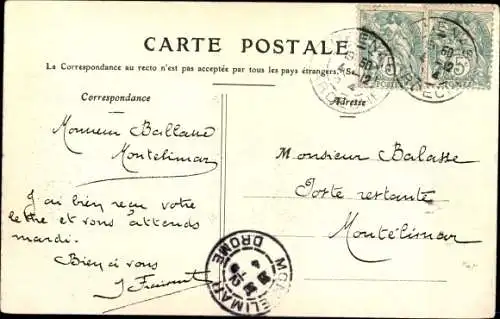 CARTE POSTALE
La Correspondance au recto n'est pas acceptée par tous les pays étrangers.
Correspondance
Adresse
Monsieur
Montélimar
J'ai bien reçu votre
lettre et vous attends
mardi.
Bien à vous
Monsieur Balasse
Poste restante
Montélimar
MONTELIMAR
DROME